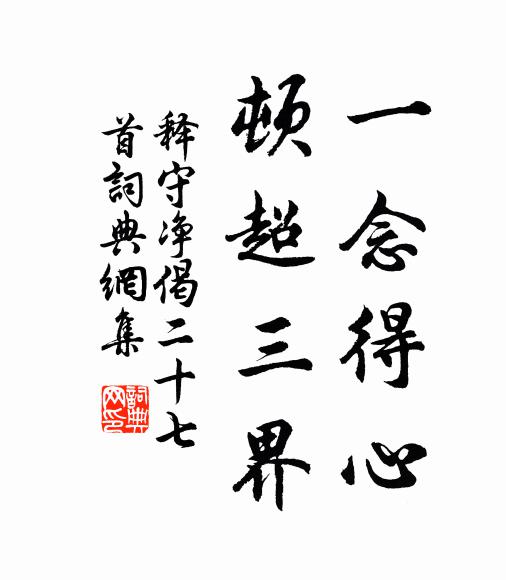 一念得心
頓超三界
释守净偈二十七
首詞典網集
詞典
网印